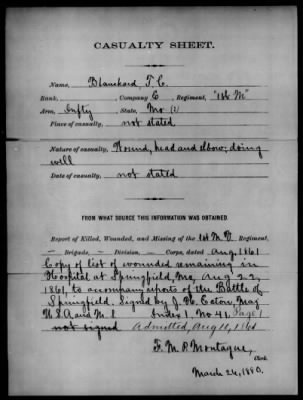 CASUALTY SHEET.
Name, Blanchard, T. C.
Rank, Company E, Regiment, "1st M"
Arm, Infty State, Mo (?)
Place of casualty, not stated
Nature of casualty, Wound, head and elbow; doing
well
Date of casualty, not stated
FROM WHAT SOURCE THIS INFORMATION WAS OBTAINED.
Report of Killed, Wounded, and Missing of the 1st M. V. Regiment,
— Brigade, — Division, — Corps, dated Aug. 1861
Copy of list of wounded remaining in
Hospital at Springfield, Mo, Aug 22,
1861, to accompany reports of the Battle of
Springfield. Signed by J. H. Eaton, Maj
U.S.A. and M. S Index 1, No 41. Page 1
not signed Admitted, Aug 10, 1861
F. M. P. Montague,
Clerk.
March 26, 1880.